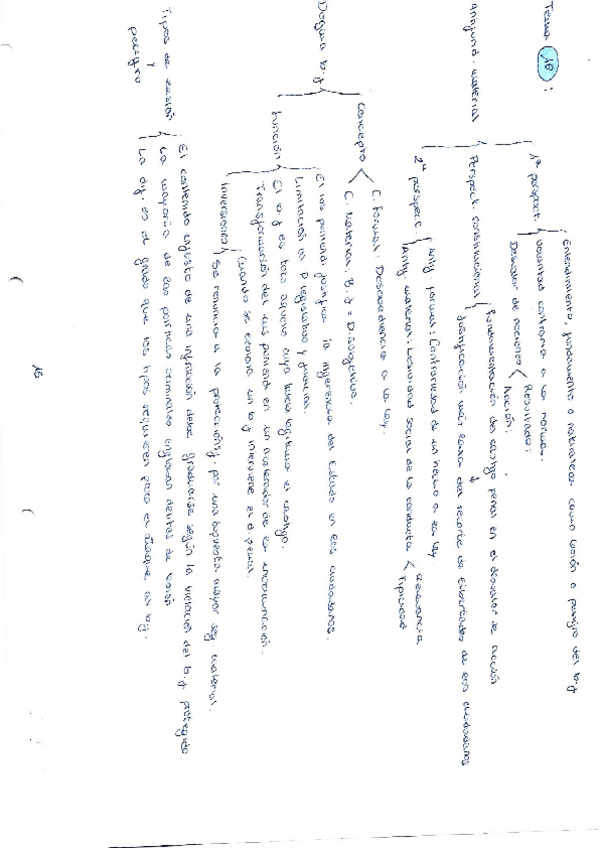 Tema 10:
Antijurid. material
1ª perspect.
Entendimiento, fundamento o naturaleza como lesión o peligro del b.j
Voluntad contraria a la norma.
Desvalor de acciones
Resultado:
Acción:
Perspect. constitucional
Fundamentación del castigo penal en el desvalor de acción
Justificación más laxa del recorte de libertades de los ciudadanos
2ª perspect.
Antij formal: Contrariedad de un hecho a la ley.
Antij material: Lesividad social de la conducta
Relevancia
Tipicidad
Dogma b.j
Concepto
C. formal: Desobediencia a la ley.
C. Material: B.j = D. subjetivo.
Función
El ius puniendi justifica la ingerencia del Estado en los ciudadanos.
Limitación al P. legislativo y judicial.
El b.j es todo aquello cuya lesión legitima el castigo.
Transformación del ius puniendi en un acelerador de la incriminación.
Inversiones
Cuando se lesiona un b.j interviene el d. penal.
Se renuncia a la protección b.j. por una supuesta mayor seg. material.
Tipos de lesión y peligro
El contenido injusto de una infracción debe graduarse según la violación del b.j protegido.
La mayoría de las políticas criminales engloban delitos de lesión
La dif. es el grado que los tipos requieren para el ataque al b.j.
15